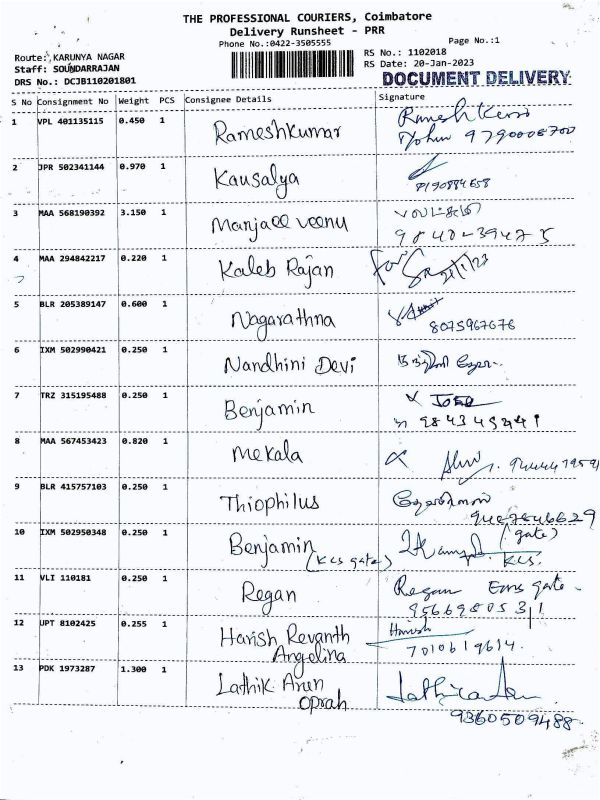 THE PROFESSIONAL COURIERS, Coimbatore
Delivery Runsheet - PRR
Phone No.:0422-3505555
Page No.:1
Route: KARUNYA NAGAR
Staff: SOUNDARRAJAN
DRS No.: DCJB110201801
RS No.: 1102018
RS Date: 20-Jan-2023
DOCUMENT DELIVERY
S No Consignment No Weight PCS Consignee Details Signature
1 VPL 401135115 0.450 1 Rameshkumar
9790006700
2 JPR 502341144 0.970 1 Kausalya
3 MAA 568190392 3.150 1 Manjaee veenu
4 MAA 294842217 0.220 1 Kaleb Rajan for
5 BLR 205389147 0.600 1 Nagarathna
8075967676
6 IXM 502990421 0.250 1 Nandhini Devi
7 TRZ 315195488 0.250 1 Benjamin
8 MAA 567453423 0.820 1 Mekala
9 BLR 415757103 0.250 1 Thiophilus
10 IXM 502950348 0.250 1 Benjamin (gate)
(KLS gate) KLS.
11 VLI 110181 0.250 1 Regan Regan Ems gate
9566950531
12 UPT 8102425 0.255 1 Harish Revanth Harish
Angelina 7010619614.
13 PDK 1973287 1.300 1 Lathik Arun
Oprah
9360509488